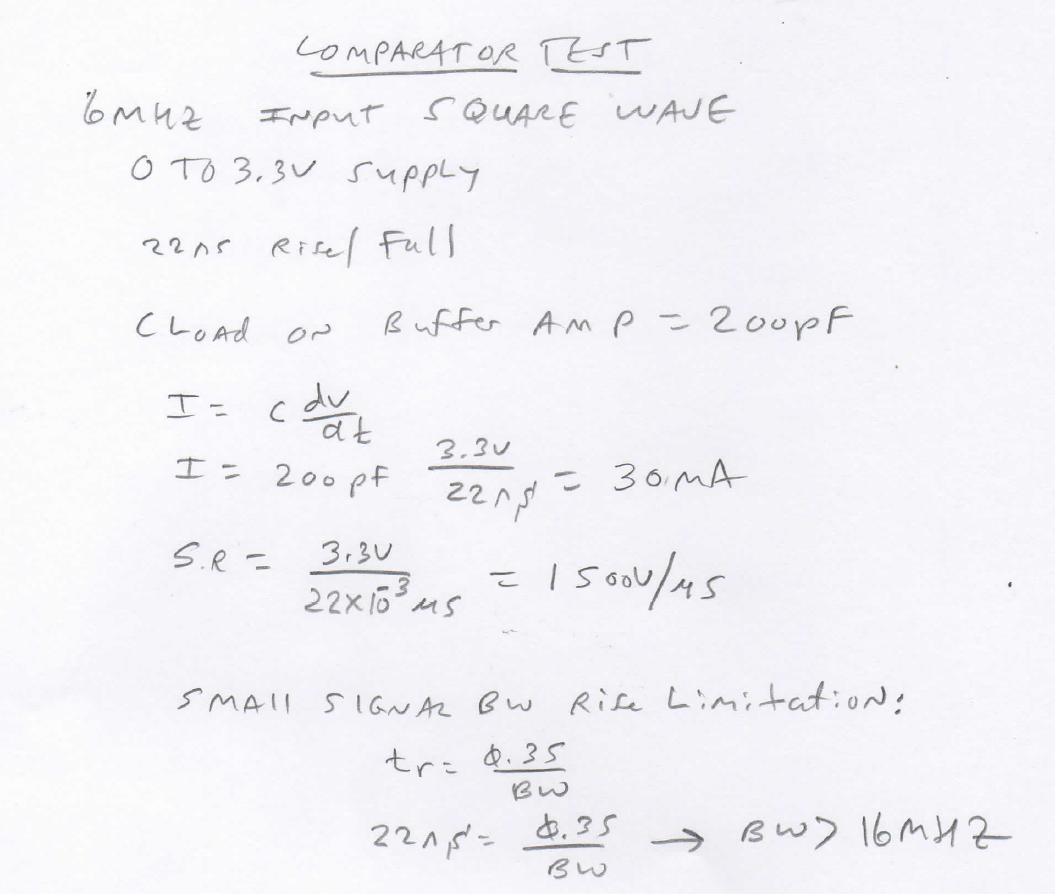 COMPARATOR TEST
6MHZ INPUT SQUARE WAVE
0 TO 3.3V SUPPLY
22ns Rise/Fall
CLOAD ON Buffer AMP = 200pF
I = C dv/dt
I = 200pf 3.3V/22ns = 30mA
S.R = 3.3V/22x10^-3 µs = 1500V/µs
SMAll SIGNAL BW Rise LimitatioN:
tr = 0.35/BW
22ns = 0.35/BW → BW> 16MHZ